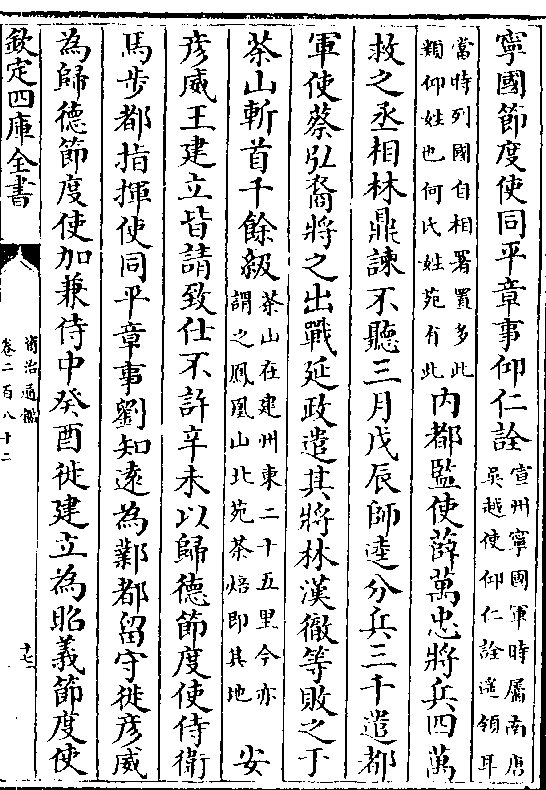 寧國節度使同平章事仰仁詮宣州寧國軍時屬南唐吳越使仰仁詮遙領耳
當時列國自相署置多此類仰姓也何氏姓苑有此內都監使薛萬忠將兵四萬
救之丞相林鼎諫不聽三月戊辰師逵分兵三千遣都
軍使蔡弘裔將之出戰延政遣其將林漢徹等敗之于
茶山斬首千餘級茶山在建州東二十五里今亦謂之鳳凰山北苑茶焙即其地安
彥威王建立皆請致仕不許辛未以歸德節度使侍衛
馬步都指揮使同平章事劉知遠為鄴都留守徙彥威
為歸德節度使加兼侍中癸酉徙建立為昭義節度使
欽定四庫全書
資治通鑑
卷二百八十二
十七